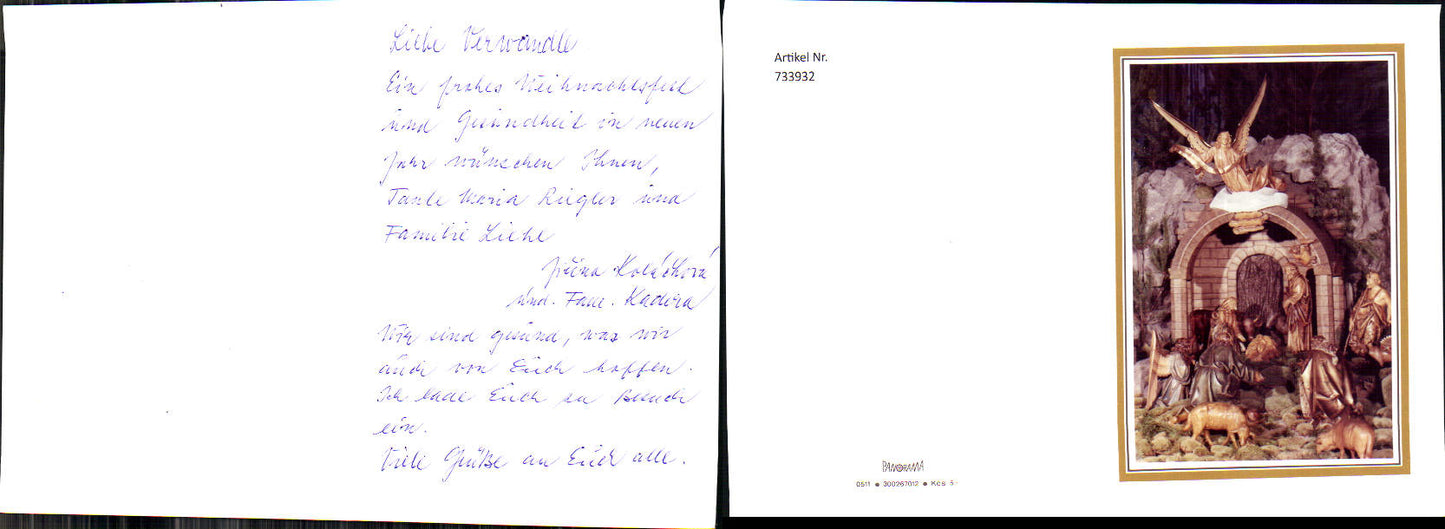 Liebe Verwandte
Ein frohes Weihnachtsfest
und Gesundheit in neuen
Jahr wünschen Ihnen,
Tante Maria Riegler und
Familie Liehe
Jiřina Koláčková
und. Fam. Kadera
Wir sind gesund, was wir
auch von Euch hoffen.
Ich lade Euch zu Besuch
ein.
Viele Grüße an Euch alle.
Artikel Nr.
733932
PANORAMA
0511 • 300267012 • Kcs 5-